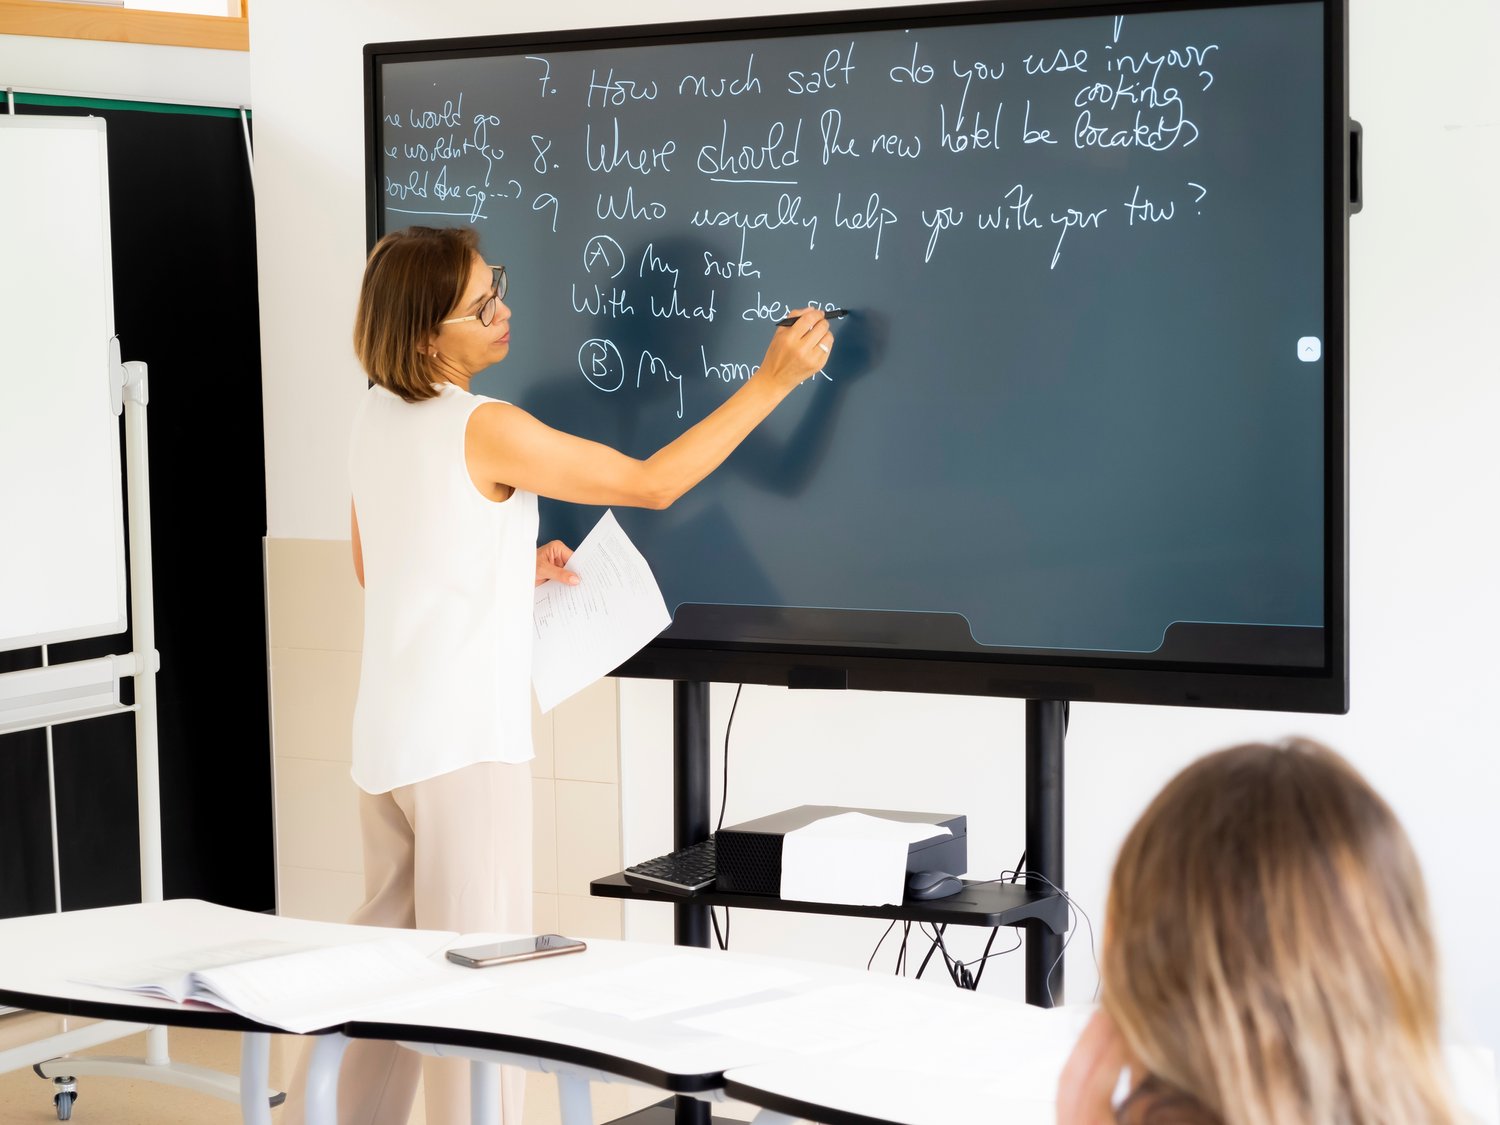 he would go
he wouldn't go
would she go...?
7. How much salt do you use in your
cooking?
8. Where should the new hotel be located?
9 Who usually help you with your
(A) My sister
With what does
(B) My